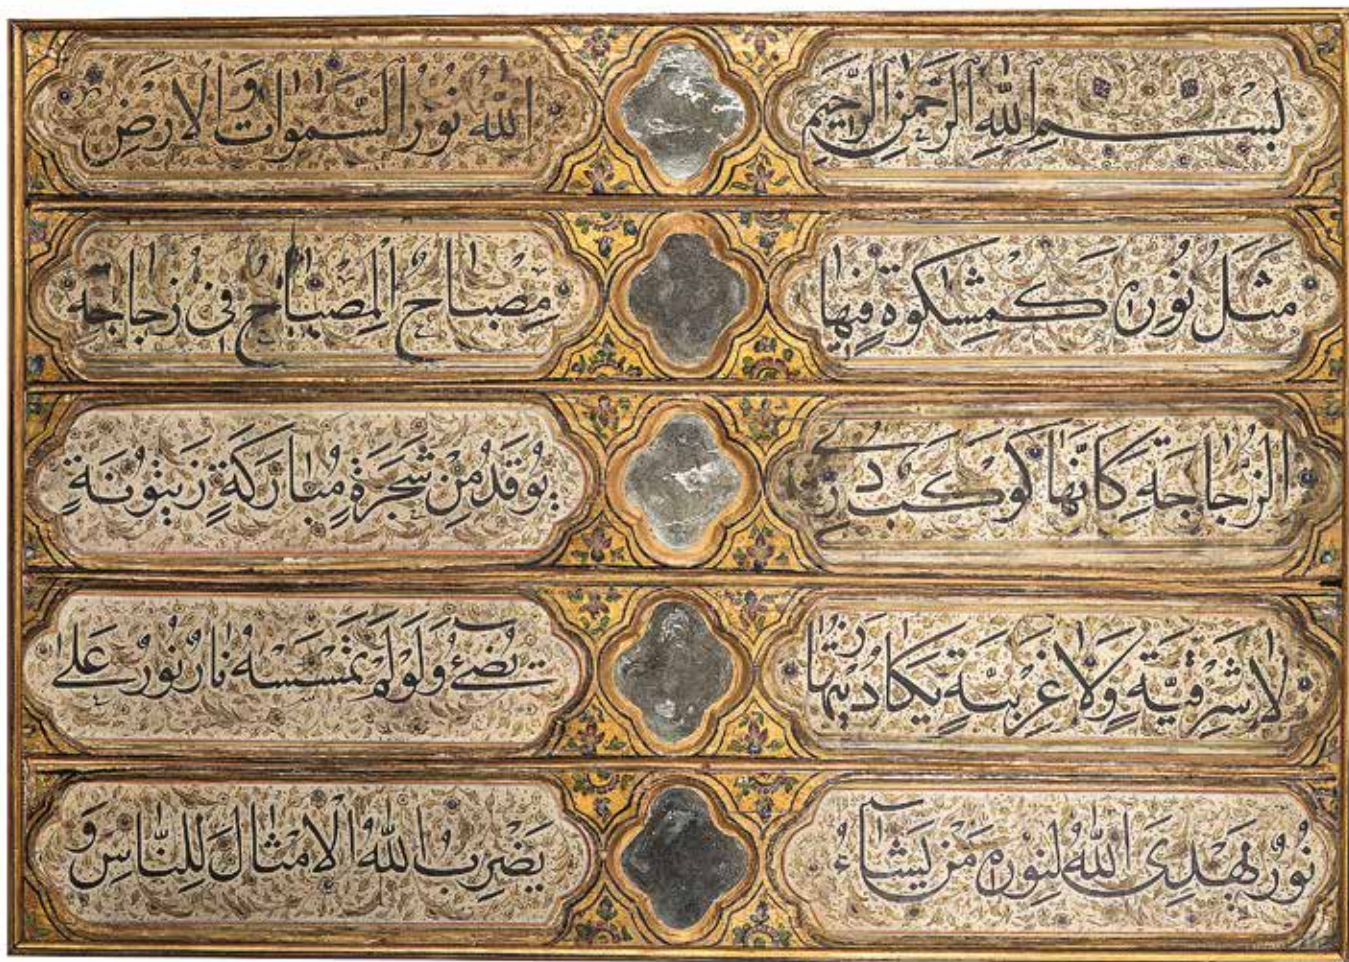 بِسْمِ اللهِ الرَّحْمٰنِ الرَّحِيمِ
اَللهُ نُورُ السَّمٰوَاتِ وَالْاَرْضِ
مَثَلُ نُورِهٖ كَمِشْكٰوةٍ فِيهَا
مِصْبَاحٌ اَلْمِصْبَاحُ فِى زُجَاجَةٍ
اَلزُّجَاجَةُ كَاَنَّهَا كَوْكَبٌ دُرِّىٌّ
يُوقَدُ مِنْ شَجَرَةٍ مُبَارَكَةٍ زَيْتُونَةٍ
لَا شَرْقِيَّةٍ وَلَا غَرْبِيَّةٍ يَكَادُ زَيْتُهَا
يُضِىٓءُ وَلَوْ لَمْ تَمْسَسْهُ نَارٌ نُورٌ عَلٰى
نُورٍ يَهْدِى اللهُ لِنُورِهٖ مَنْ يَشَٓاءُ
يَضْرِبُ اللهُ الْاَمْثَالَ لِلنَّاسِ وَ